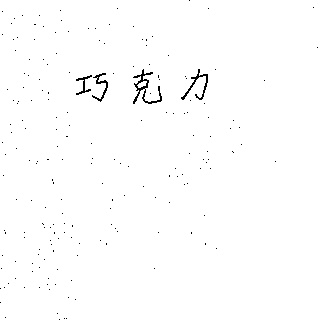 巧克力